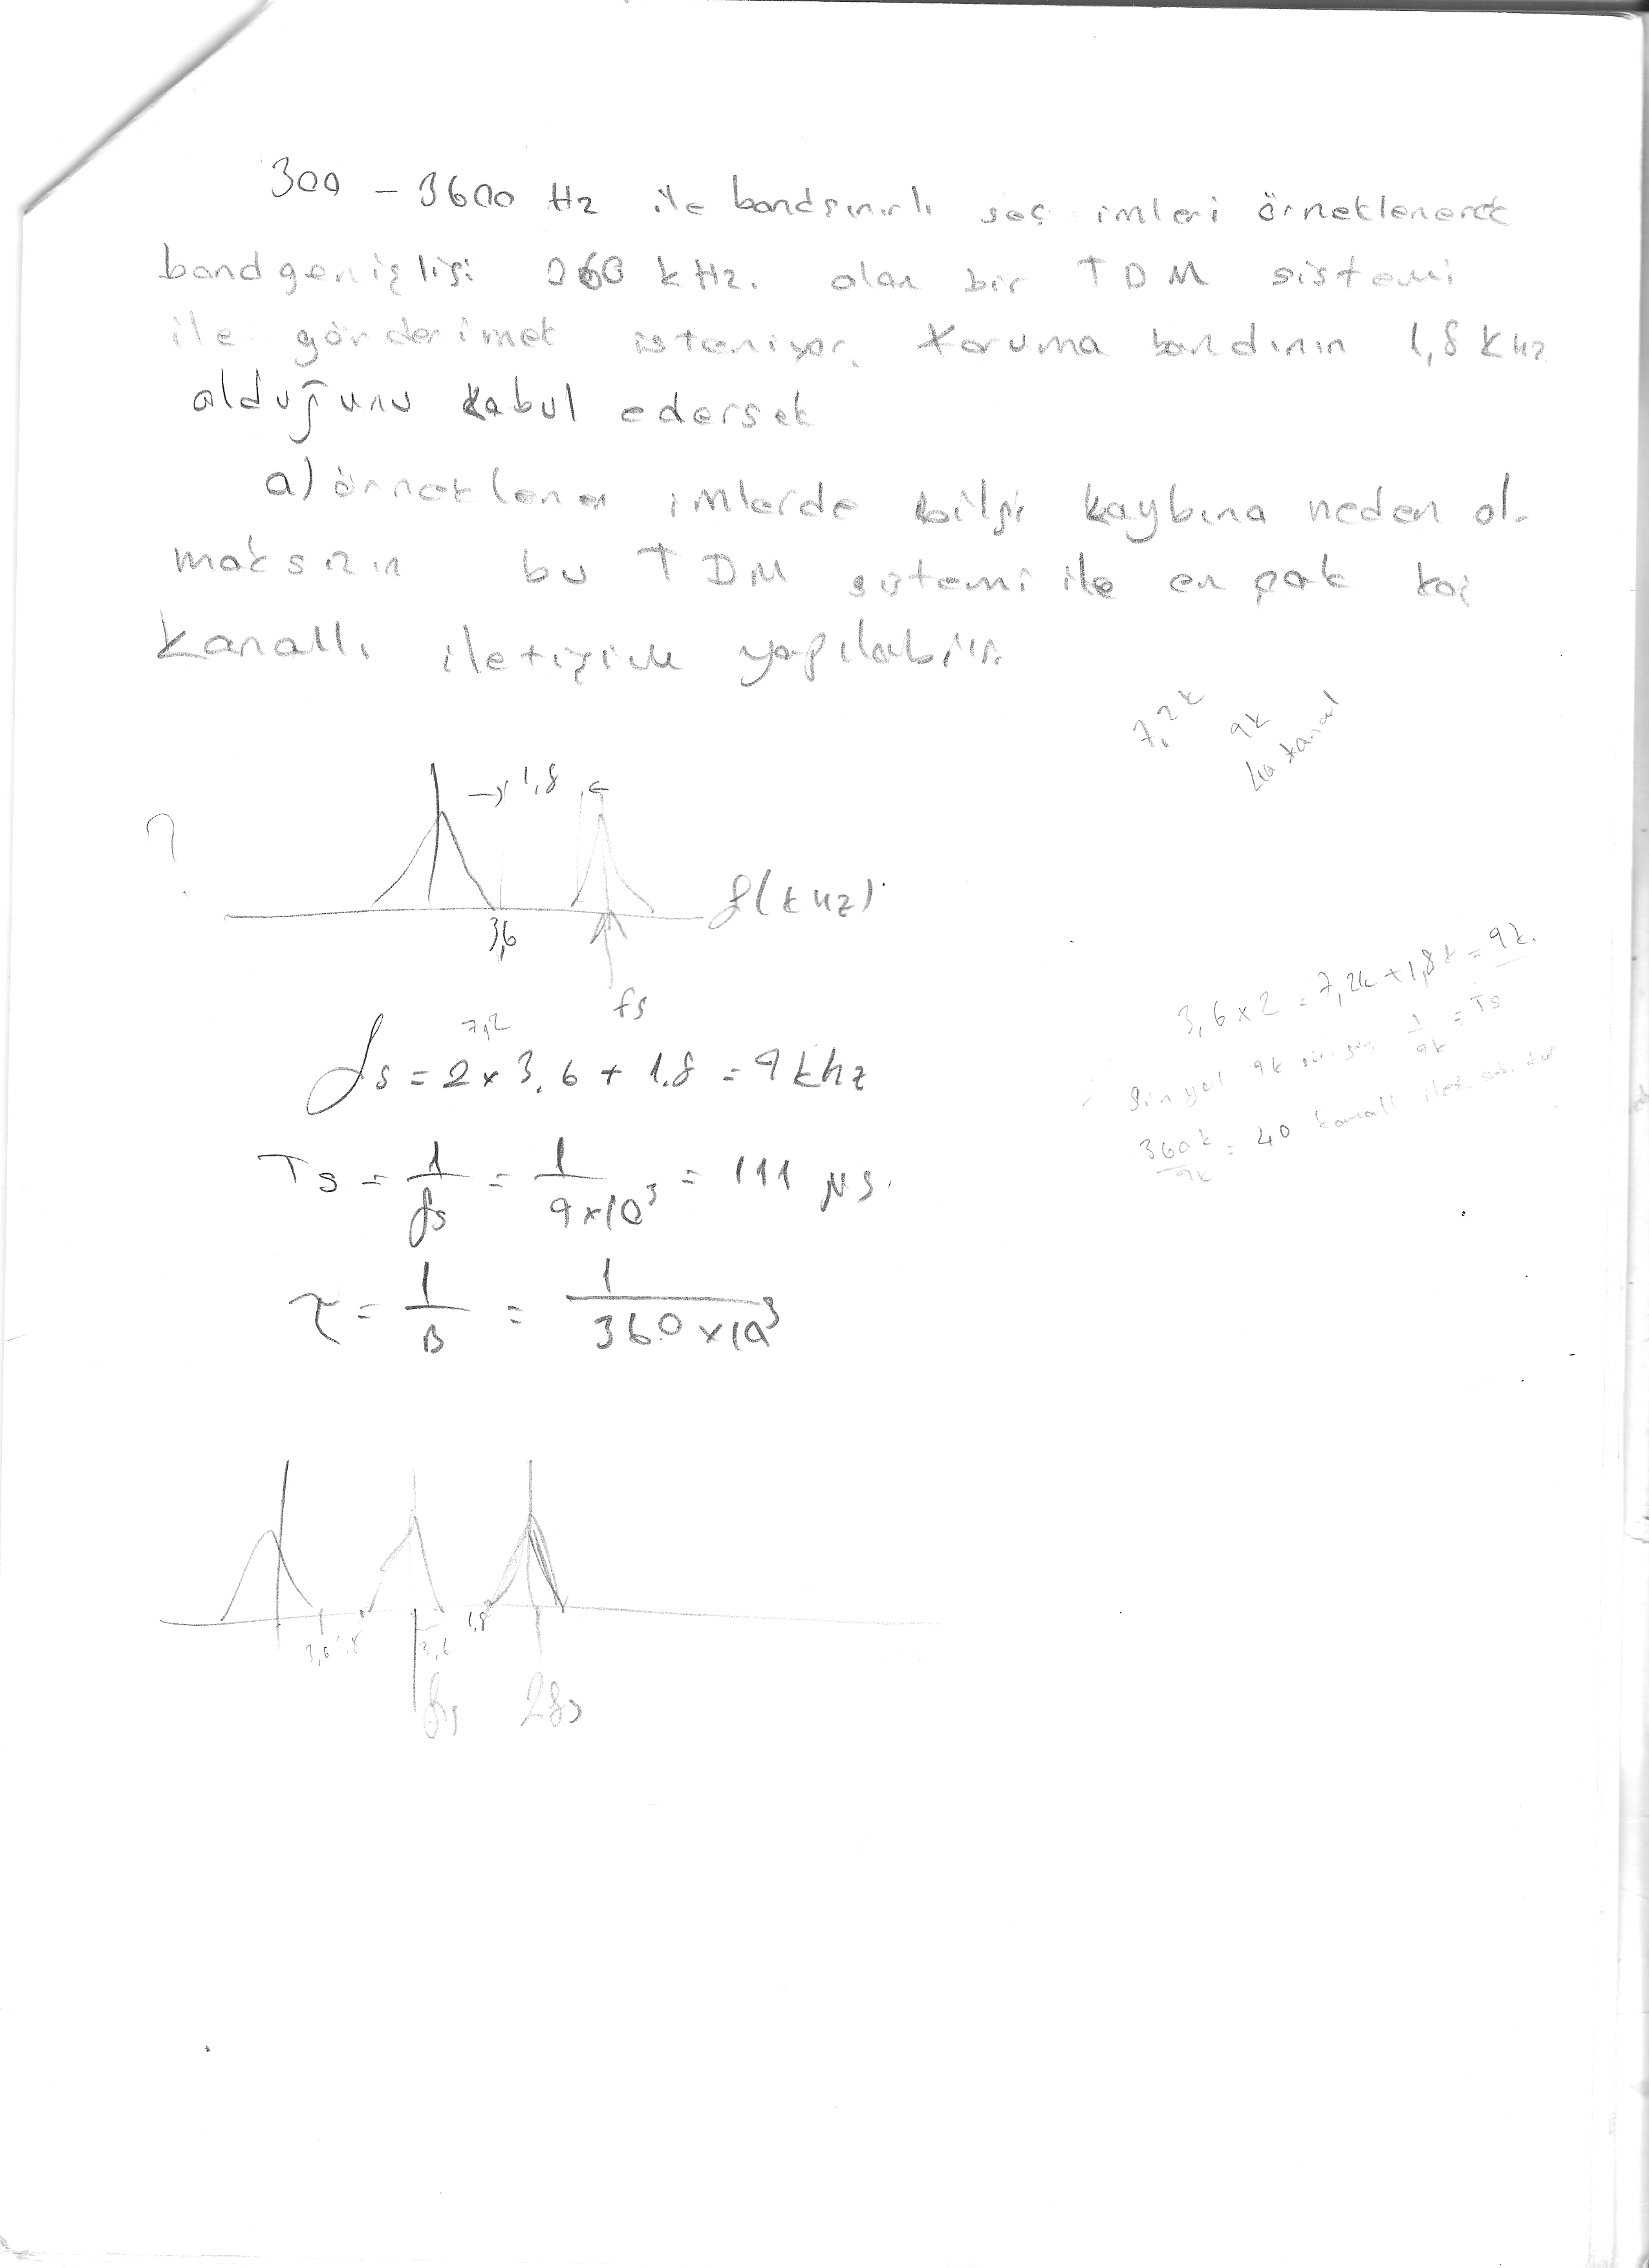 300 - 3600 Hz ile bandsınırlı ses imleri örneklenerek
bandgenişliği 360 kHz. olan bir TDM sistemi
ile gönderilmek isteniyor. Koruma bandının 1,8 kHz
olduğunu kabul edersek
a) örneklenen imlerde bilgi kaybına neden ol-
maksızın bu TDM sistemi ile en çok kaç
kanallı iletişim yapılabilir.
7,2k 9k
40 kanal
? → 1,8 ←
3,6 f(kHz)
fs
7,2
fs = 2 x 3,6 + 1.8 = 9 khz
3,6 x 2 = 7,2k + 1,8k = 9k.
Ts = 1/fs = 1/9x10³ = 111 µs.
Sinyal 9k 1/9k = Ts
360k/9k = 40 kanallı
τ = 1/B = 1/360x10³
3,6 1,8 3,6 1,8
fs 2fs